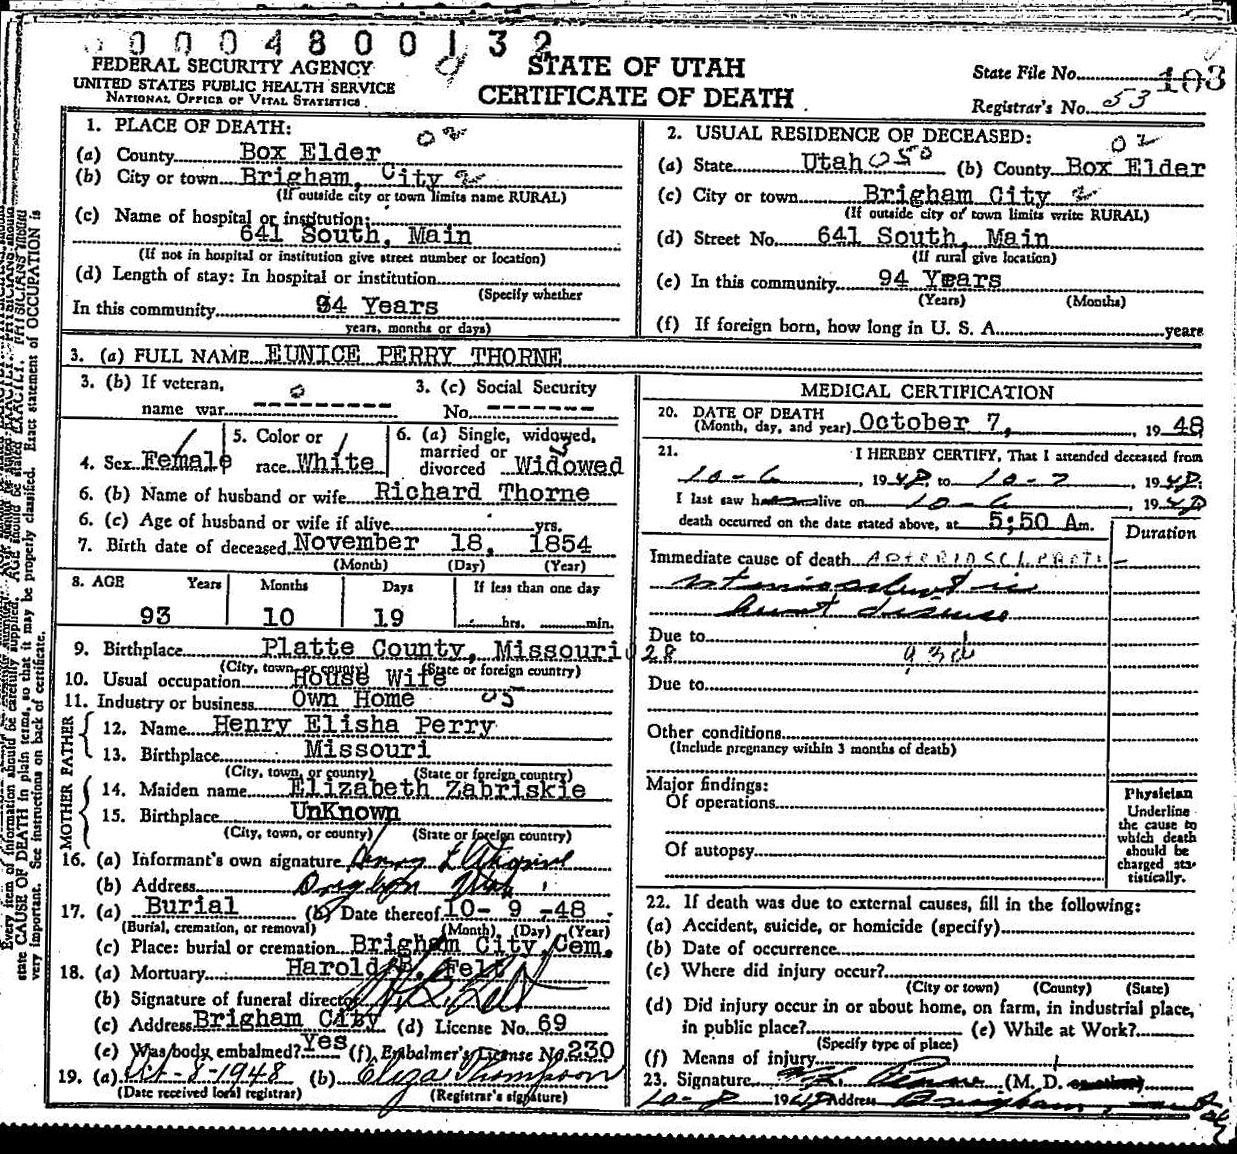 0 0 0 4 8 0 0 1 3 2
FEDERAL SECURITY AGENCY
UNITED STATES PUBLIC HEALTH SERVICE
NATIONAL OFFICE OF VITAL STATISTICS
STATE OF UTAH
CERTIFICATE OF DEATH
State File No. 103
Registrar's No. 53
1. PLACE OF DEATH: 02
(a) County Box Elder
(b) City or town Brigham, City 2
(If outside city or town limits name RURAL)
(c) Name of hospital or institution:
641 South, Main
(If not in hospital or institution give street number or location)
(d) Length of stay: In hospital or institution
(Specify whether
In this community 94 Years
years, months or days)
2. USUAL RESIDENCE OF DECEASED: 02
(a) State Utah 050 (b) County Box Elder
(c) City or town Brigham City 2
(If outside city of town limits write RURAL)
(d) Street No. 641 South, Main
(If rural give location)
(e) In this community 94 Years
(Years) (Months)
(f) If foreign born, how long in U. S. A. years
3. (a) FULL NAME EUNICE PERRY THORNE
3. (b) If veteran, 3. (c) Social Security
name war - - - - - - - - No. - - - - - - -
4. Sex Female 5. Color or race White 6. (a) Single, widowed, married or divorced Widowed
6. (b) Name of husband or wife Richard Thorne
6. (c) Age of husband or wife if alive yrs.
7. Birth date of deceased November 18, 1854
(Month) (Day) (Year)
8. AGE Years Months Days If less than one day
93 10 19 hrs. min.
9. Birthplace Platte County, Missouri 028
(City, town, or county) (State or foreign country)
10. Usual occupation House Wife
11. Industry or business Own Home 05
FATHER
12. Name Henry Elisha Perry
13. Birthplace Missouri
(City, town, or county) (State or foreign country)
MOTHER
14. Maiden name Elizabeth Zabriskie
15. Birthplace UnKnown
(City, town, or county) (State or foreign country)
16. (a) Informant's own signature
(b) Address Brigham Utah
17. (a) Burial (b) Date thereof 10- 9 -48
(Burial, cremation, or removal) (Month) (Day) (Year)
(c) Place: burial or cremation Brigham City, Cem.
18. (a) Mortuary Harold B. Felt
(b) Signature of funeral director
(c) Address Brigham City (d) License No. 69
(e) Was body embalmed? Yes (f) Embalmer's License No. 230
19. (a) Oct-8-1948 (b) Eliza Thompson
(Date received local registrar) (Registrar's signature)
MEDICAL CERTIFICATION
20. DATE OF DEATH
(Month, day, and year) October 7, , 1948
21. I HEREBY CERTIFY, That I attended deceased from
10-6, 1948, to 10-7, 1948;
I last saw h alive on 10-6, 1948
death occurred on the date stated above, at 5;50 Am.
Duration
Immediate cause of death ARTERIOSCLEROTIC
heart disease
Due to
93d
Due to
Other conditions
(Include pregnancy within 3 months of death)
Major findings:
Of operations
Of autopsy
Physician
Underline
the cause to
which death
should be
charged sta-
tistically.
22. If death was due to external causes, fill in the following:
(a) Accident, suicide, or homicide (specify)
(b) Date of occurrence
(c) Where did injury occur?
(City or town) (County) (State)
(d) Did injury occur in or about home, on farm, in industrial place,
in public place? (e) While at Work?
(Specify type of place)
(f) Means of injury
23. Signature (M. D.
10-8 1948 Address Brigham, Utah